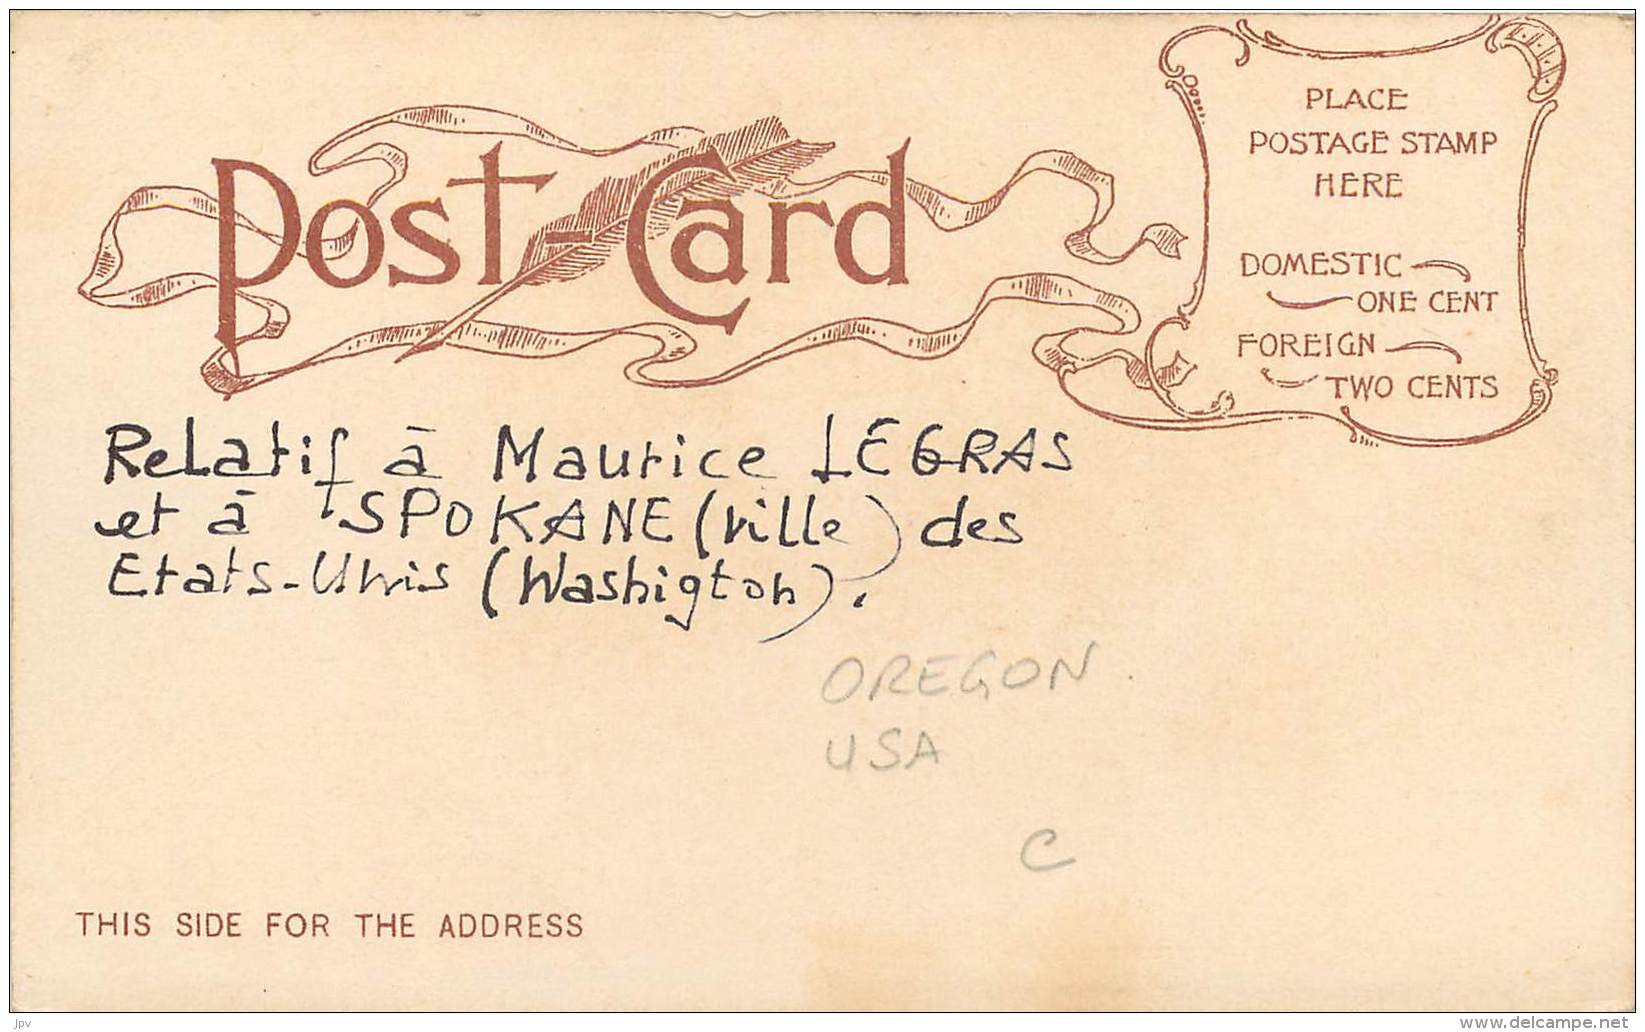 Post-Card
PLACE
POSTAGE STAMP
HERE
DOMESTIC
ONE CENT
FOREIGN
TWO CENTS
Relatif à Maurice LÉGRAS
et à SPOKANE (ville) des
Etats-Unis (Washigton).
OREGON
USA
C
THIS SIDE FOR THE ADDRESS
jpv
delcampe.net